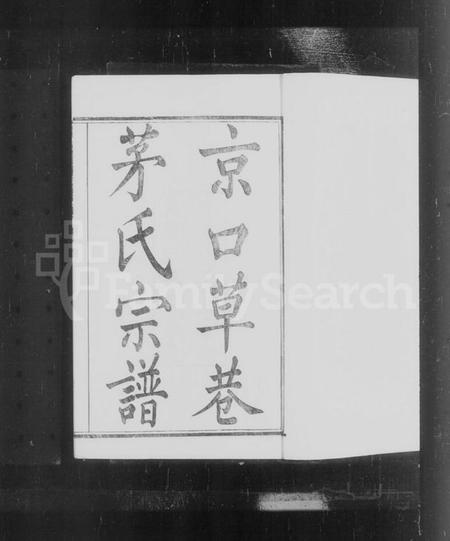 京口草巷
茅氏宗譜
FamilySearch